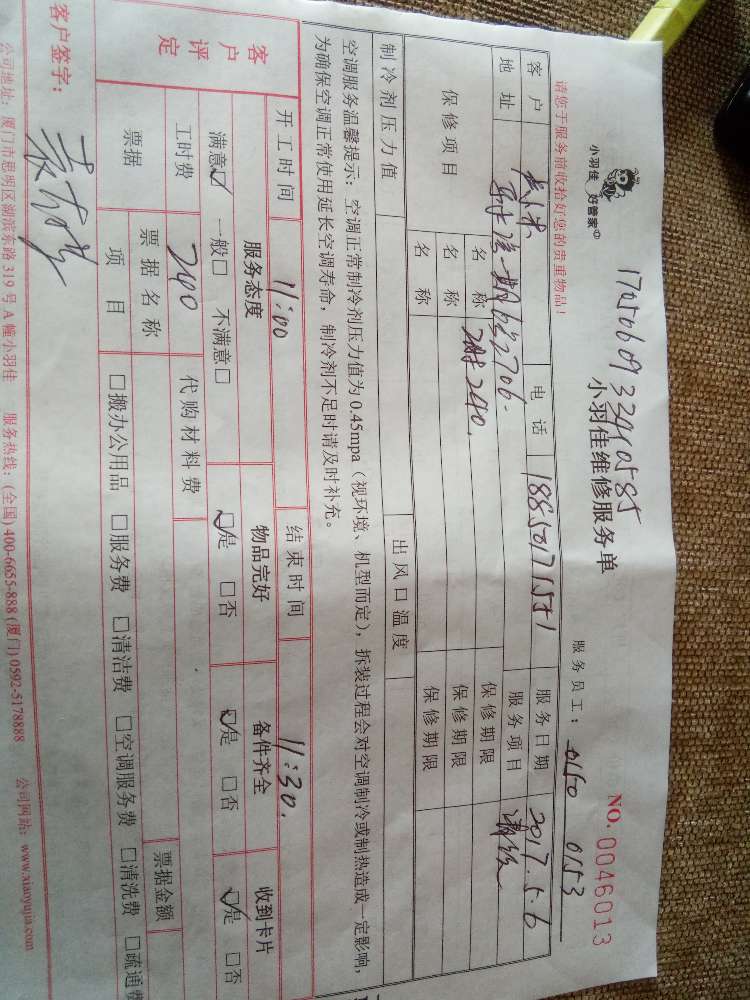 小羽佳 好管家
17050609339410585
小羽佳维修服务单
NO. 0046013
请您于服务前收拾好您的贵重物品!
服务员工: 0150 0153
客户 电话 18850171551 服务日期 2017.5.6
地址 服务项目
保修项目 名称 240. 保修期限
名称 保修期限
名称 保修期限
制冷剂压力值 出风口温度
空调服务温馨提示:空调正常制冷剂压力值为0.45mpa(视环境、机型而定),拆装过程会对空调制冷或制热造成一定影响,
为确保空调正常使用延长空调寿命,制冷剂不足时请及时补充。
开工时间 11:00 结束时间 11:30.
客户评定 服务态度 物品完好 备件齐全 收到卡片
满意☑ 一般□ 不满意□ ☑是 □否 ☑是 □否 ☑是 □否
工时费 240 代购材料费
票据 票据名称 票据金额
项目 □搬办公用品 □服务费 □清洁费 □空调服务费 □清洗费 □疏通费
客户签字:
公司地址:厦门市思明区湖滨东路319号A幢小羽佳 服务热线:(全国)400-6655-888(厦门)0592-5178888 公司网站:www.xiaoyujia.com